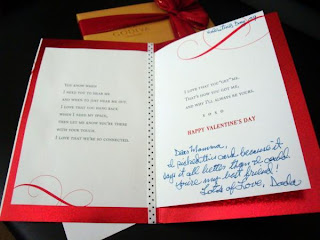 GODIVA
YOU KNOW WHEN
I NEED YOU TO HEAR ME
AND WHEN TO JUST HEAR ME OUT.
I LOVE THAT YOU STAND BACK
WHEN I NEED MY SPACE,
THEN LET ME KNOW YOU'RE THERE
WITH YOUR TOUCH.
I LOVE THAT WE'RE SO CONNECTED.
Valentine's Day
I LOVE THAT YOU "GET" ME.
THAT'S HOW YOU GOT ME,
AND WHY I'LL ALWAYS BE YOURS.
HAPPY VALENTINE'S DAY
Dear Mamma,
I picked this card because it
says it all better than I could
you're my best friend!
Lots of Love, Dada